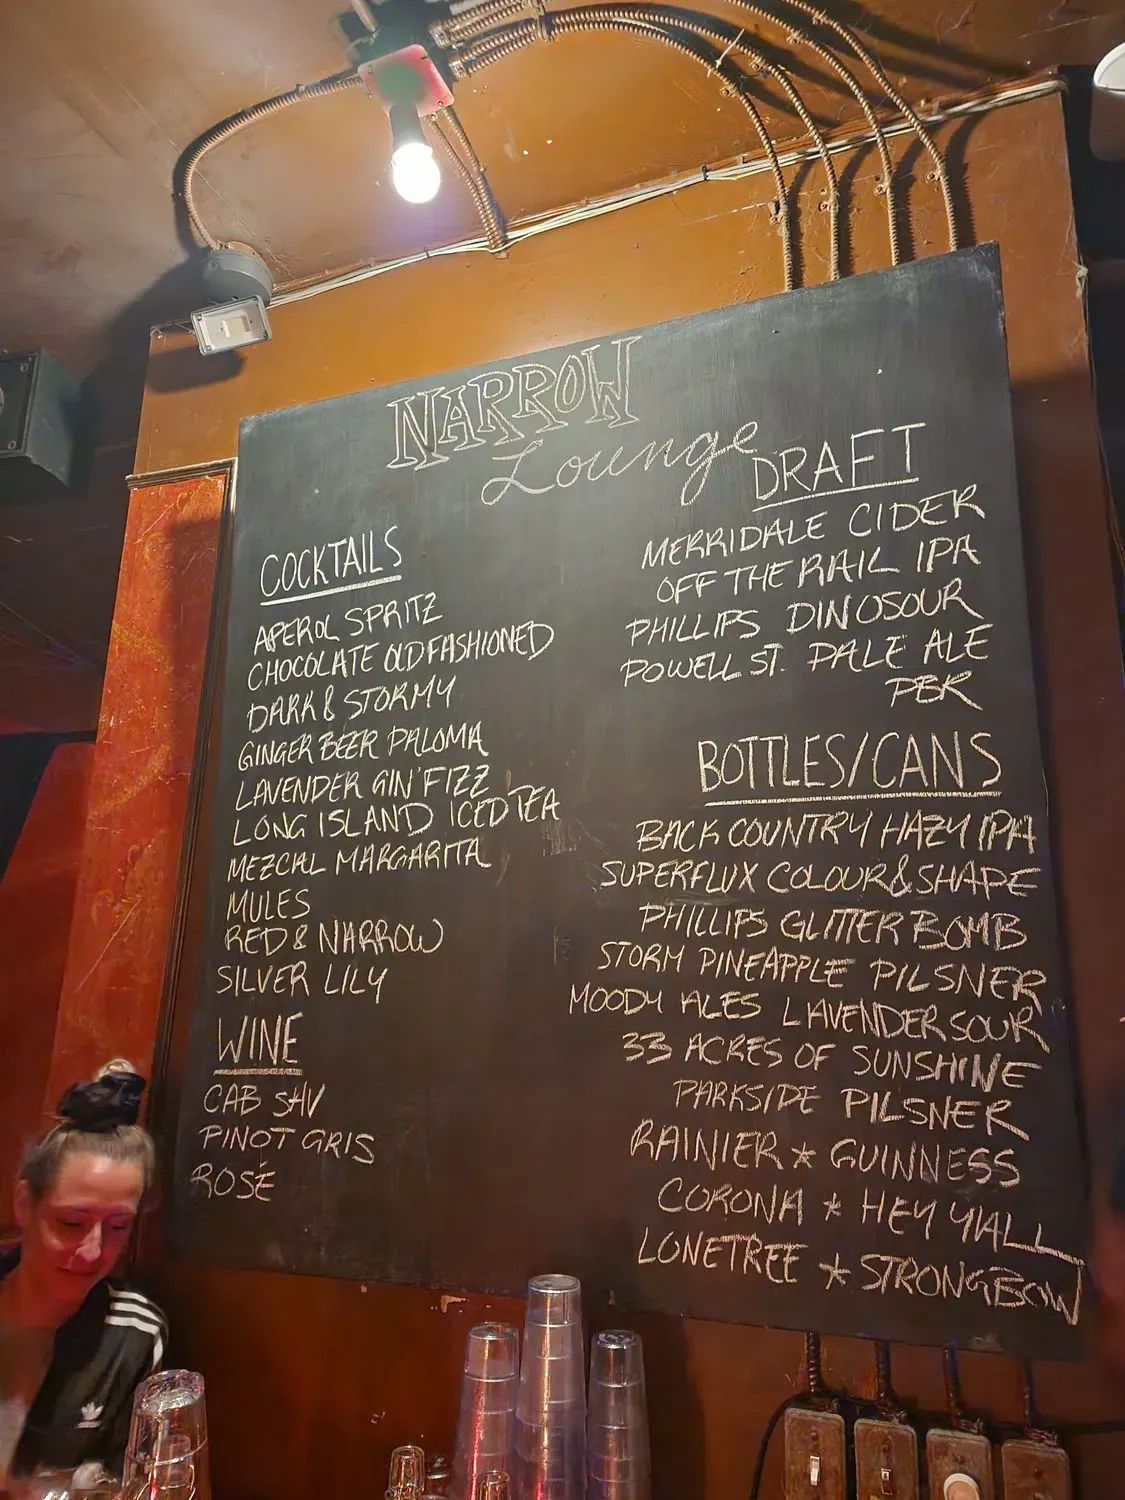 NARROW
Lounge
COCKTAILS
APEROL SPRITZ
CHOCOLATE OLD FASHIONED
DARK & STORMY
GINGER BEER PALOMA
LAVENDER GIN FIZZ
LONG ISLAND ICED TEA
MEZCAL MARGARITA
MULES
RED & NARROW
SILVER LILY
WINE
CAB SAV
PINOT GRIS
ROSÉ
DRAFT
MERRIDALE CIDER
OFF THE RAIL IPA
PHILLIPS DINOSOUR
POWELL ST. PALE ALE
PBR
BOTTLES/CANS
BACKCOUNTRY HAZY IPA
SUPERFLUX COLOUR & SHAPE
PHILLIPS GLITTER BOMB
STORM PINEAPPLE PILSNER
MOODY ALES LAVENDER SOUR
33 ACRES OF SUNSHINE
PARKSIDE PILSNER
RAINIER * GUINNESS
CORONA * HEY Y'ALL
LONETREE * STRONGBOW